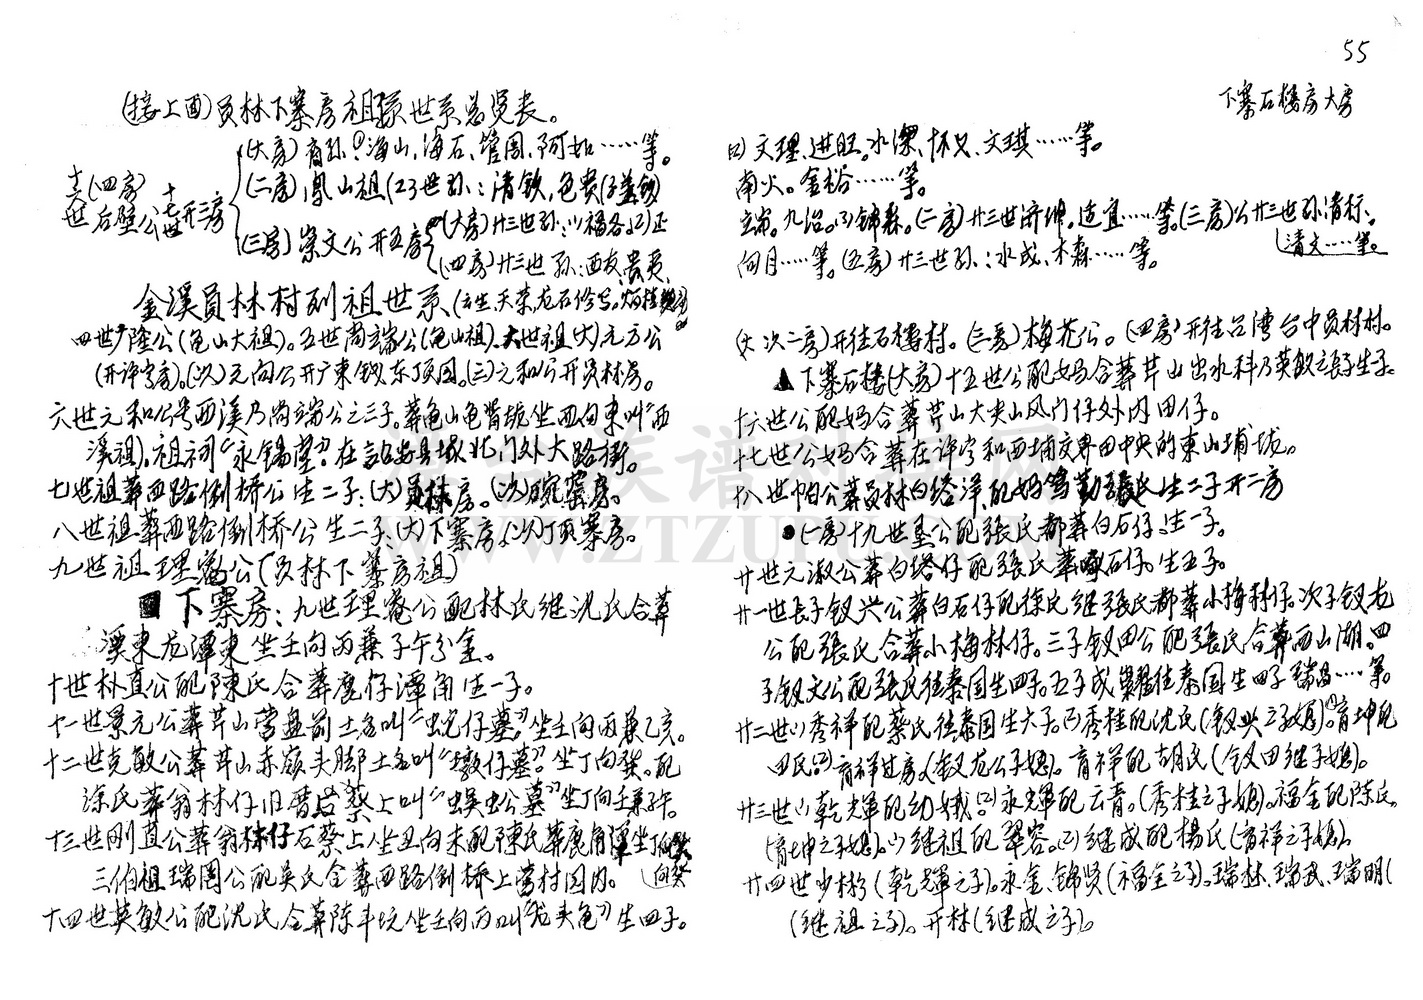 55
下寨石楼房大房
(接上面)员林下寨房祖源世系总览表。
十六世(四房)后壁公十七世开三房
(大房)裔孙:海山,海石、管周,阿如……等。
(二房)凤山祖(23世孙:清钦,色贵(子益钦)
(三房)崇文公开五房
(大房)廿三世孙:(1)福各(2)正
(四房)廿三世孙:西友,景英、
金溪員林村列祖世系
四世 隆公(龟山大祖)。五世尚端公(龟山祖)。六世祖(大)元方公
(开译宇房)。(次)元向公开广東饶东顶围。(三)元和公开员林房。
六世元和公号西溪乃尚端公之三子。葬龟山龟肾坑坐西向東叫“西
溪祖)。祖祠“永锡堂”。在詔安县城北门外大路街。
七世祖葬西路倒桥公生二子:(大)員林房。(次)碗窑房。
八世祖葬西路倒桥公生二子:(大)下寨房、(次)顶寨房。
九世祖理菴公(员林下寨房祖)
下寨房:九世理菴公配林氏继沈氏合葬
溪東龙潭東坐壬向丙兼子午分金。
十世朴直公配陳氏合葬鹿仔潭角生一子。
十一世景元公葬芹山营盘前土名叫“蛇仔墓”,坐壬向丙兼乙亥。
十二世克敏公葬芹山赤嶺头脚土名叫“墩仔墓”。坐丁向癸。配
涂氏葬翁林仔旧厝后蔡上叫“蜈蚣墓”坐丁向壬兼子午。
十三世刚直公葬翁林仔石蔡上坐丑向未配陳氏葬鹿角潭坐丁向癸
三伯祖瑞周公配吴氏合葬西路倒桥上营村园内。
十四世英敏公配沈氏合葬陈斗坑坐壬向丙叫“龙夹龟”生四子。
(四)文理、进旺。水深、怀义、文琪……等。
南火。金裕……等。
立端。九治。(3)锦森。(二房)廿三世济坤。适宜……等。(三房)公廿三世孙清标:
清文……等。
向月……等。(五房)廿三世孙:水成、木森……等。
(大、次二房)开往石楼村。(三房)梅花公。(四房)开往台湾台中员林村。
▲下寨石楼(大房)十五世公配妈合葬芹山出水科乃英敏之長子生子。
十六世公配妈合葬芹山大夹山风门仔外内田仔。
十七世公妈合葬在译宇和西埔交界田中央的東山埔坟。
十八世帕公葬員林白塔洋,配妈笃勤張氏生二子开二房
●(一房)十九世垦公配張氏都葬白石仔。生一子。
廿世元淑公葬白塔仔配張氏葬 石仔。生五子。
廿一世長子钗兴公葬白石仔配徐氏继張氏都葬小梅林仔。次子钗龙
公配張氏合葬小梅林仔。三子钗田公配張氏合葬西山湖。四
子钗文公配張氏往泰国生四子。五子成 往泰国生四子 瑞昌……等。
廿二世(1)秀祥配蔡氏往泰国生六子。(2)秀桂配沈氏(钗兴之子媳)。(1)育坤配
田氏(2)育祥过房。(钗龙公子媳)。育祥配胡氏(钗田继子媳)。
廿三世(1)乾輝配幼娥(2)永輝配云青。(秀桂之子媳)。福全配陈氏。
(育坤之子媳)。(1)继祖配翠容。(2)继成配楊氏(育祥之子媳)。
廿四世少彬(乾輝之子)。永金、锦贤(福全之子)。瑞林、瑞武、瑞明(
(继祖之子)。开林(继成之子)。